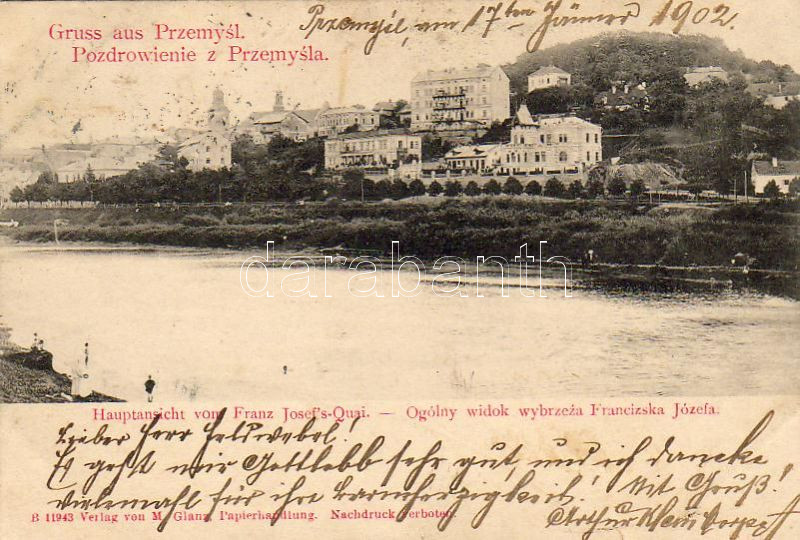 Przemyśl, am 17ten Jänner 1902.
Gruss aus Przemyśl.
Pozdrowienie z Przemyśla.
darabanth
Hauptansicht vom Franz Josef's-Quai. — Ogólny widok wybrzeża Francizska Józefa.
Lieber Herr Feldwebel!
Es geht mir Gottlobb sehr gut, und ich dancke
vielemahl für ihre Barmcherzigkeit! Mit Gruß!
B 11943 Verlag von M. Glanz, Papierhandlung. Nachdruck verboten.
Arthur